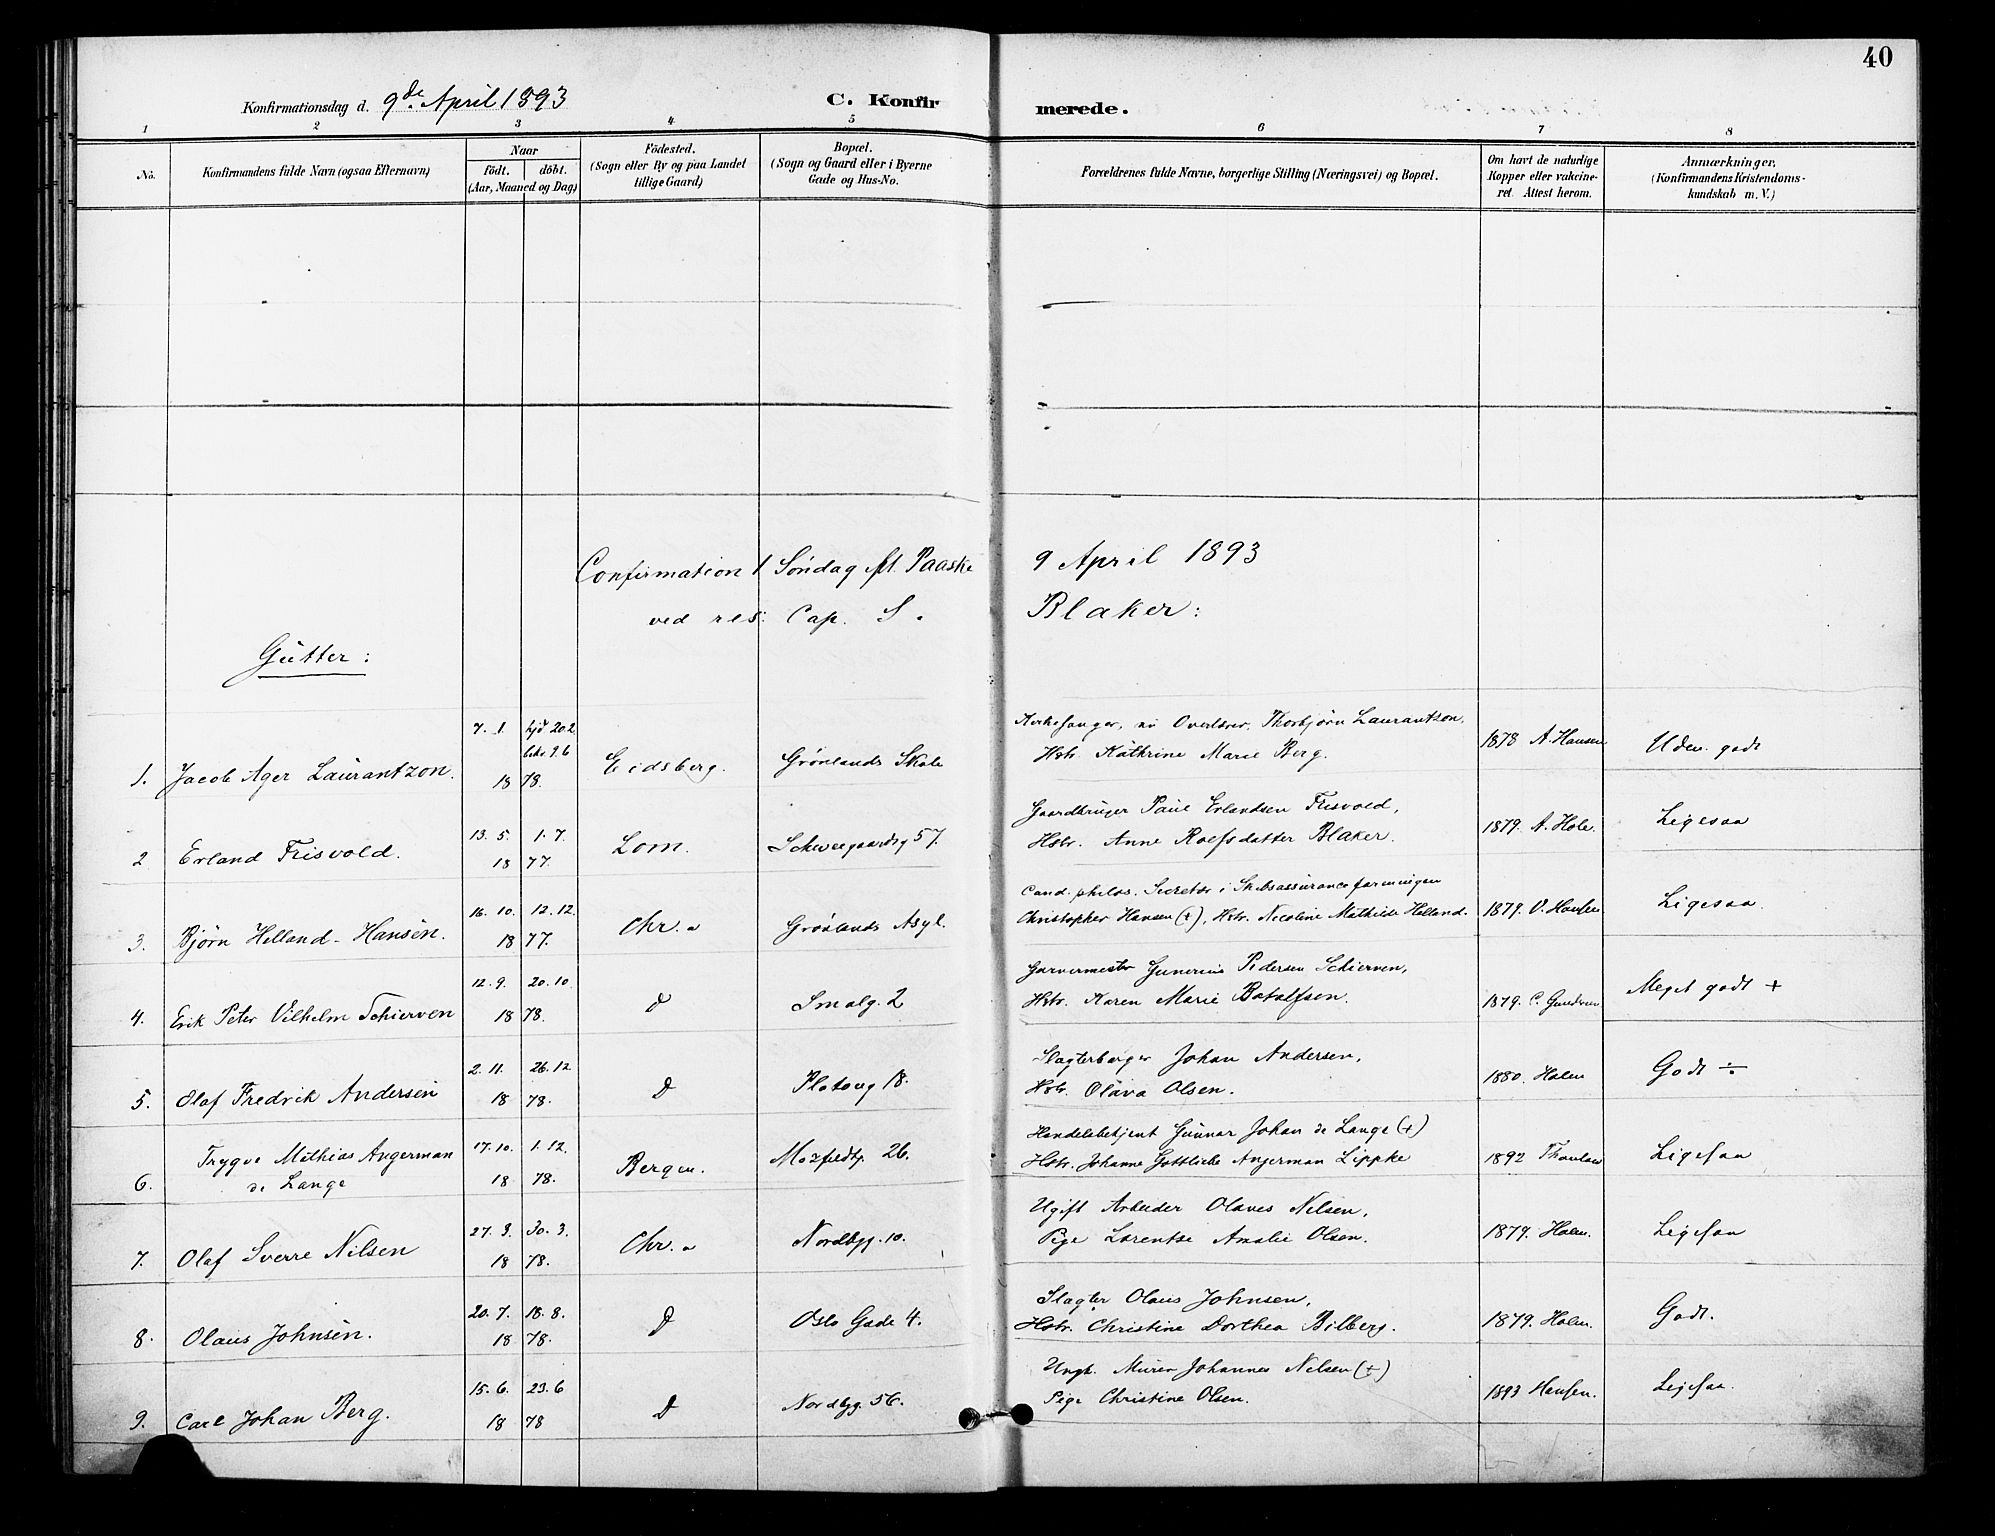 40
Konfirmationsdag d. 9de April 1893
C. Konfirmerede.
1 2 3 4 5 6 7 8
No.
Konfirmandens fulde Navn (ogsaa Efternavn)
Naar
født. døbt.
(Aar, Maaned og Dag)
Födested.
(Sogn eller By og paa Landet
tillige Gaard)
Bopæl.
(Sogn og Gaard eller i Byerne
Gade og Hus-No.
Forældrenes fulde Navne, borgerlige Stilling (Næringsvei) og Bopæl.
Om havt de naturlige
Kopper eller vakcine-
ret. Attest herom.
Anmærkninger,
(Konfirmandens Kristendoms-
kundskab m. V.)
Confirmation 1 Søndag Paaske 9 April 1893
ved res: Cap. S. Blaker:
Gutter:
1. Jacob Ager Laurantzon. 7. 1. 18 78. hjd 20.2 9.6 Eidsberg. Grønlands Skole
Kirkesanger, nu Overlærer, Thorbjørn Laurantzon,
Hstr. Kathrine Marie Berg. 1878 A. Hansen Uden. godt
2 Erland Frisvold. 13. 5. 1. 7. 18 77. Lom. Schweegaardsg 57.
Gaardbruger Paul Erlandsen Frisvold,
Hstr. Anne Roefsdatter Blaker. 1879. A. Hole. Ligesaa
3. Bjørn Helland-Hansen. 16. 10. 12. 12. 18 77. Chr.a Grønlands Asyl.
Cand. philos. Secretær i Skibsassuranceforeningen
Christopher Hansen (+), Hstr. Nicoline Mathilde Helland. 1879. V. Hansen Ligesaa.
4. Erik Peter Vilhelm Schierven 12. 9. 20. 10. 18 78. d Smalg. 2
Garvermester Gunerius Pedersen Schierven,
Hstr. Karen Marie Botolfsen. 1879. C. Meget godt +
5. Olaf Fredrik Andersen 2. 11. 26. 12 18 78. d Platoug 18.
Slagterborger Johan Andersen,
Hstr. Olava Olsen. 1880. Holm Godt ÷
6. Trygve Mathias Angerman
de Lange 17. 10. 1. 12. 18 78. Bergen. 26.
Handelsbetjent Gunnar Johan de Lange (+)
Hstr. Johanne Gottliebe Angerman Lippke 1892 Thaulow Ligesaa
7. Olaf Sverre Nilsen 27. 3. 30. 3. 18 78. Chr.a Nordbyg. 10.
Ugift Arbeider Olaves Nilsen,
Pige Lorentse Amalie Olsen. 1879. Holm. Ligesaa
8. Olaus Johnsen. 20. 7. 18. 8. 18 78. d Oslo Gade 4.
Slagter Olaus Johnsen,
Hstr. Christine Dorthea Bilberg. 1879. Holm. Godt.
9. Carl Johan Berg. 15. 6. 23. 6 18 78 d Nordbyg. 56.
Ungk. Murer Johannes Nilsen (+)
Pige Christine Olsen. 1893 Hansen. Ligesaa.